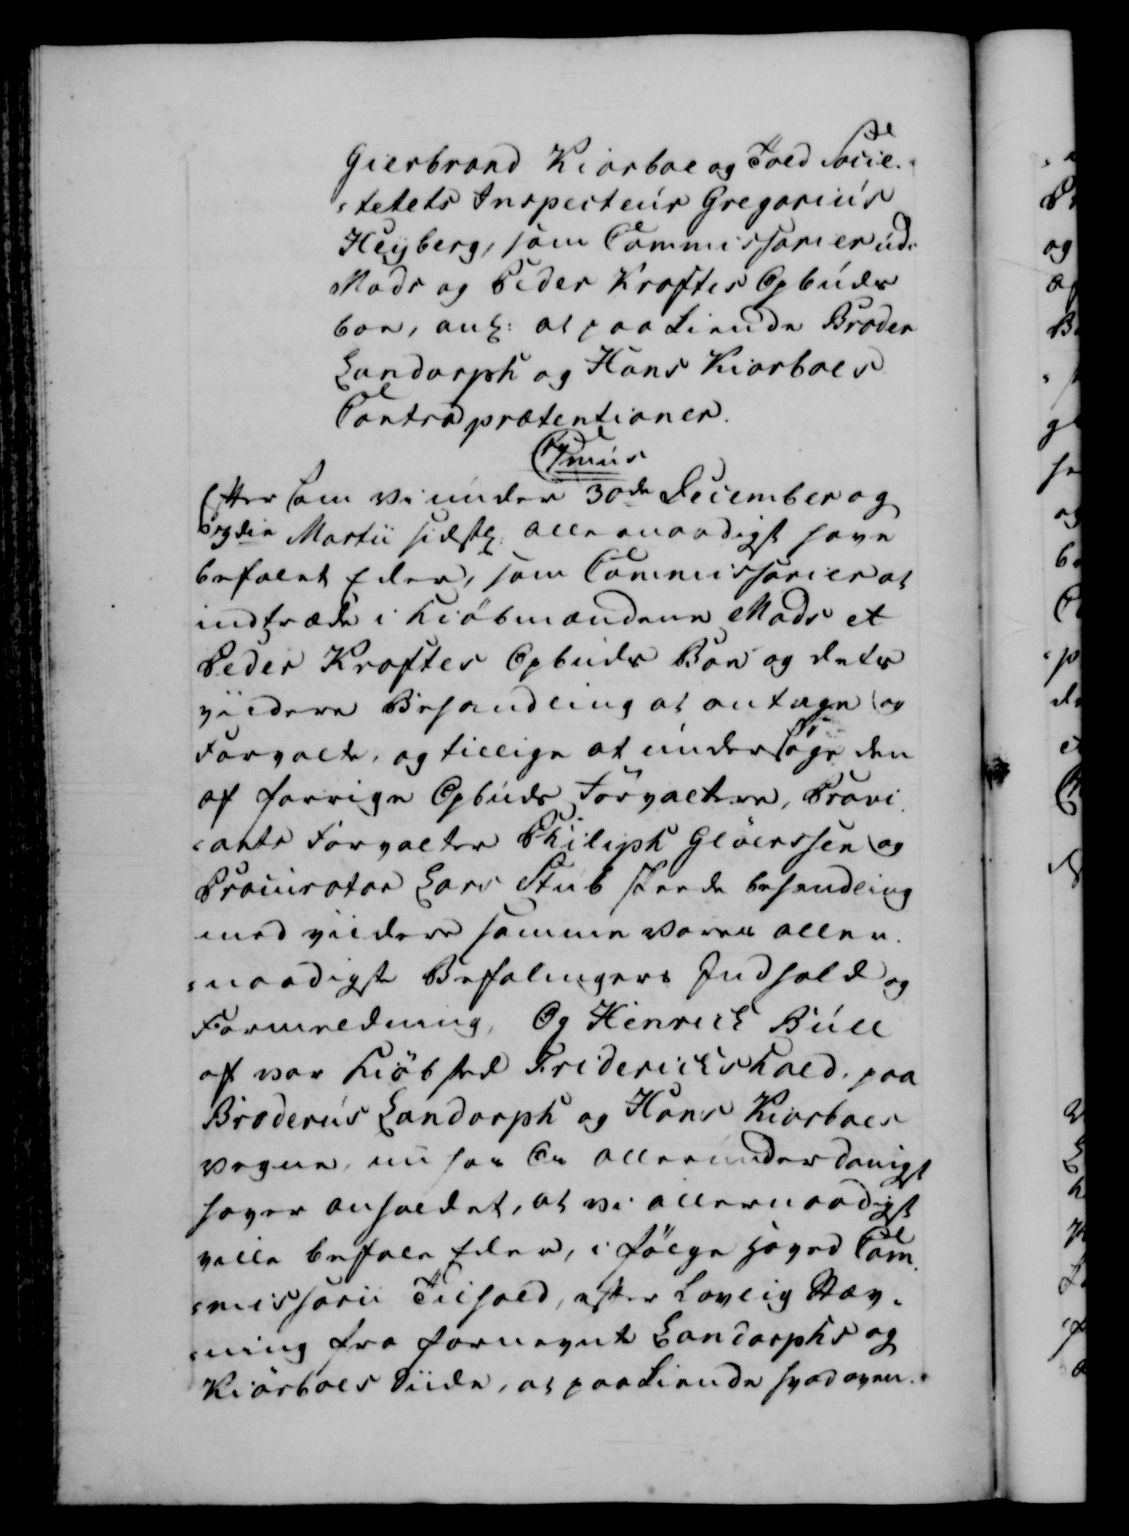 Gierbrand Kiørboe og Told Socie-
-tetets Inspecteur Gregorius
Heyberg, som Commissarier udi
Mads og Peder Kroftes Opbuds
boe, ang: at paakiende Broder
Landorph og Hans Kiørboes
Contra prætentioner.
Efter som vi under 30de December og
Martii sidstl: allernaadigst have
befalet Eder, som Commissarier at
indtræde i Kiøbmændene Mads et
Peder Kroftes Opbuds Boe og dets
viidere Behandling at antage og
Forvalte, og tillige at undersøge den
af forrige Opbuds Forvaltere, Provi-
-ants Forvalter Philiph Gløerssen og
Procurator Lars Stub skeede behandling
med viidere samme vores aller-
-naadigste Befalingers Indhold og
Formeldning, Og Henrich Bull
af vor Kiøbsted Friderichshald paa
Broderus Landorph og Hans Kiørboes
vegne, nu hos Os allerunderdanigst
haver anholdet, at vi allernaadigst
ville befale Eder, i følge høyed Com-
-missarii Tilhold, efter Lovlig Stæv-
-ning fra fornevnte Landorphs og
Kiørboes Siide, at paakiende hvad oven-